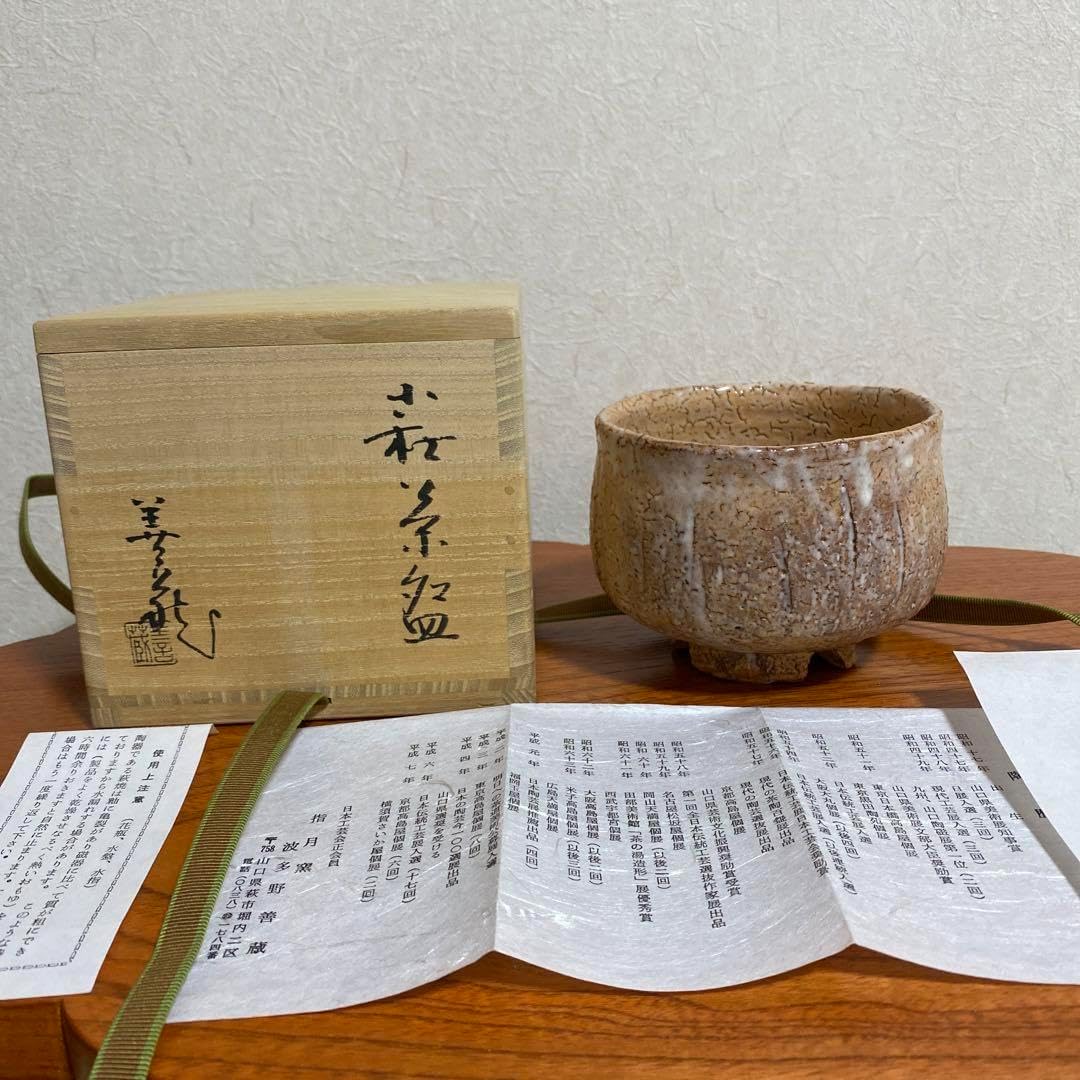 萩茶盌
善蔵
善蔵
使用上注意
（花瓶、水盤、水指）
陶器である萩焼は釉に亀裂があり磁器に比べて質が粗にでき
ておりますから水漏れする場合があります。このような
には（製品をよく乾燥させてから、熱いおもゆ）を
六時間入れておきますと自然に止まります。
場合はもう一度繰り返して下さい。
陶歴
昭和十七年 生
山口県美術展知事賞
現代工芸展入選（三回）
昭和四九年 九州、山口陶磁展第一位（二回）
山口県美術展文部大臣奨励賞
昭和五十一年 東京日本橋画廊個展
東京黒田陶苑個展
昭和五十二年 日本伝統工芸展入選
昭和五十四年
昭和五十七年 現代の茶陶百盌展出品
現代の陶芸選抜展出品
京都高島屋個展
山口県芸術文化振興奨励賞受賞
昭和五十八年 第一回全日本伝統工芸選抜作家展出品
名古屋松坂屋個展
昭和五十九年 岡山天満屋個展（以後二回）
昭和六十年
昭和六十一年 田部美術館「茶の湯造形」展優秀賞
西武宇都宮個展
昭和六十二年 大阪高島屋個展（以後二回）
昭和六十三年 米子高島屋個展（以後三回）
広島天満屋個展
平成元年 日本陶芸展推薦出品（四回）
福岡玉屋個展
平成二年
平成三年 東京高島屋個展（六回）
日本の陶芸今一〇〇選展出品
平成四年 山口県選奨を受ける
平成六年 日本伝統工芸展入選（十七回）
平成七年 京都高島屋個展（六回）
横須賀さいか屋個展（二回）
日本工芸会正会員
指月窯
波多野善蔵
〒758 山口県萩市堀内二区